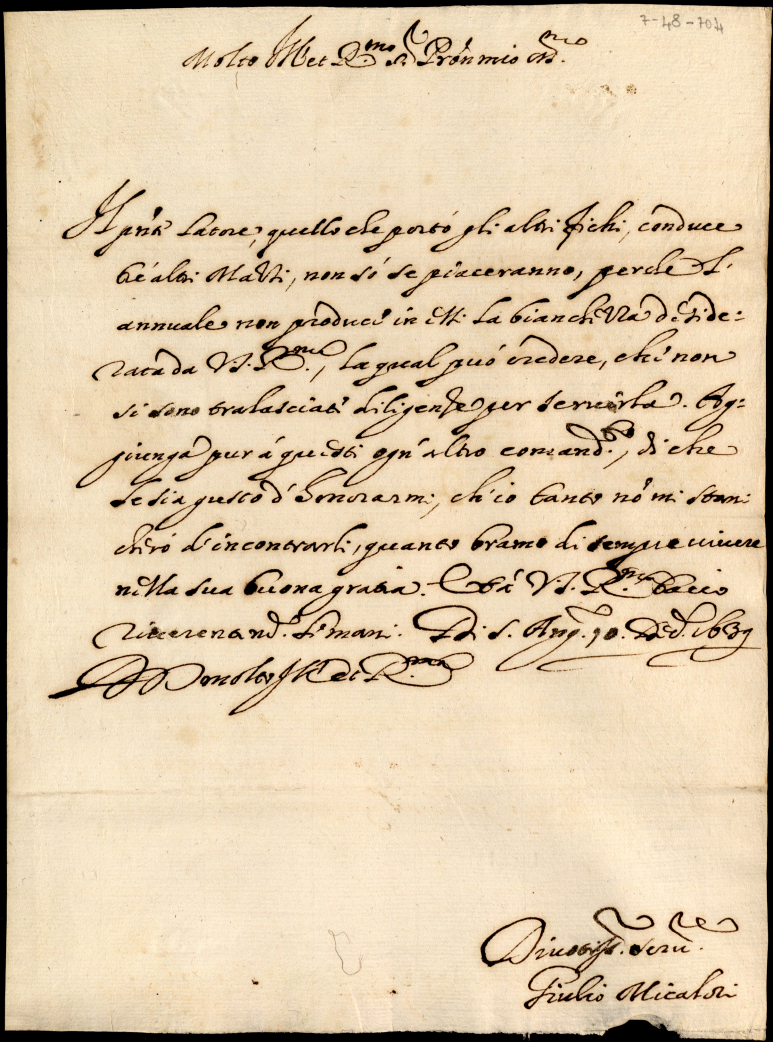 7-48-704
Molto Ill et R.mo S.r Prõn mio Oss.mo
Il pñte latore, quello che portò gli altri fichi, conduce
trè altri Matti, non sò se piaceranno, perche l'
annuale non produce in essi la bianchezza deside=
rata da V.S. R.ma, la qual può credere, che non
si sono tralasciate diligenze per servirla. Ag=
giunga pur à questi ogn'altro comand.o, di che
le sia gusto d'honorarmi, ch'io tanto nõ mi stan
cherò d'incontrarli, quanto bramo di sempre vivere
nella sua buona gratia. Et à V.S. R.ma bacio
riverentem.te le mani. Di S. Ang. 10. D. 1639
D V.S. molto Ill et R.ma
Divotiss. serv.re
Giulio Micalori